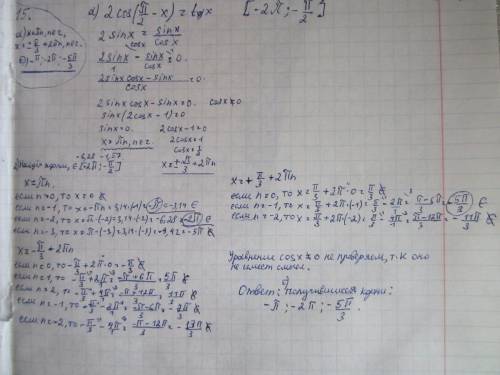 15.
а) x=πn, n∈Z,
x=±π/3+2πn, n∈Z.
б) -π; -2π; -5π/3
а) 2cos(π/2 - x) = tgx [-2π; -π/2]
2sinx = sinx/cosx
2sinx/1 - sinx/cosx = 0.
(2sinx cosx - sinx)/cosx = 0.
2sinx cosx - sinx = 0. cosx≠0
sinx(2cosx - 1) = 0
sinx=0. 2cosx-1=0
x=πn, n∈Z. 2cosx=1
cosx=1/2
x=±π/3+2πn
-6,28 -1,57
корни, ∈ [-2π; -π/2]
x=πn.
если n=0, то x=0
если n=-1, то x=-π=3,14·(-1)=-π=-3,14 ∈
если n=-2, то x=π·(-2)=3,14·(-2)=-6,28=-2π ∈
если n=-3, то x=π(-3)=3,14·(-3)=-9,42
x=-π/3+2πn
если n=0, то -π/3+2π·0=-π/3
если n=1, то -π/3+2π=(-π+6π)/3=5π/3
если n=2, то -π/3+4π=(-π+12π)/3=11π/3
если n=-1, то -π/3-2π=(-π-6π)/3=-7π/3
если n=-2, то -π/3-4π=(-π-12π)/3=-13π/3
x=+π/3+2πn
если n=0, то x=π/3+2π·0=π/3
если n=-1, то x=π/3+2π(-1)=π/3-2π=-5π/3 ∈
если n=-2, то x=π/3+2π·(-2)=π/3-4π=(π-12π)/3=-11π/3
Уравнение cosx≠0 не проверяем, т.к оно
не имеет смысл.
б)
Ответ: получившиеся корни:
-π; -2π; -5π/3.